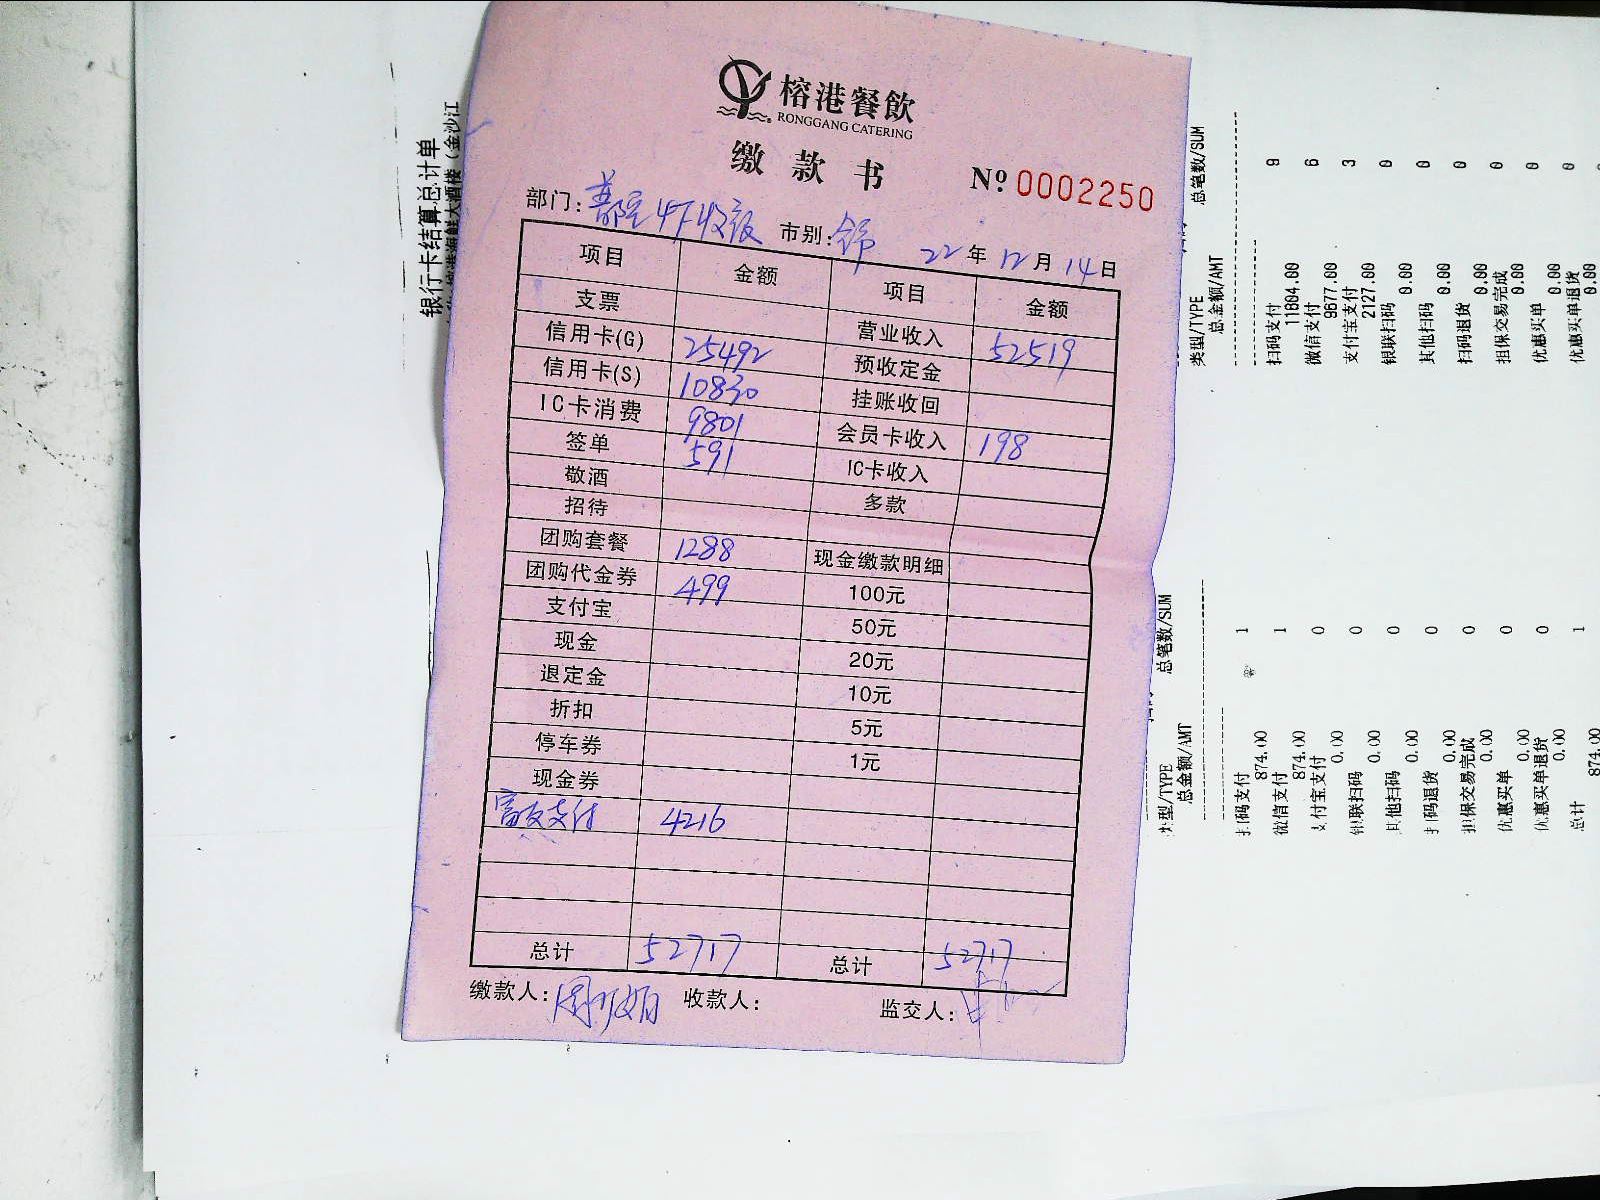 榕港餐飲
RONGGANG CATERING
缴款书 Nº 0002250
部门: 4F收银 市别: 22年12月14日
项目 金额 项目 金额
支票 营业收入 52519
信用卡(G) 25492 预收定金
信用卡(S) 10830 挂账收回
IC卡消费 9801 会员卡收入 198
签单 591 IC卡收入
敬酒 多款
招待
团购套餐 1288 现金缴款明细
团购代金券 499 100元
支付宝 50元
现金 20元
退定金 10元
折扣 5元
停车券 1元
现金券
富友支付 4216
总计 52717 总计 52717
缴款人: 收款人: 监交人:
银行卡结算总计单
海鲜大酒楼(金沙江
类型/TYPE 总笔数/SUM
总金额/AMT
扫码支付 9
11804.00
微信支付 6
9677.00
支付宝支付 3
2127.00
银联扫码 0
0.00
其他扫码 0
0.00
扫码退货 0
0.00
担保交易完成 0
0.00
优惠买单 0
0.00
优惠买单退货 0
0.00
类型/TYPE 总笔数/SUM
总金额/AMT
扫码支付 1
874.00
微信支付 1
874.00
支付宝支付 0
0.00
银联扫码 0
0.00
其他扫码 0
0.00
扫码退货 0
0.00
担保交易完成 0
0.00
优惠买单 0
0.00
优惠买单退货 0
0.00
总计 1
874.00